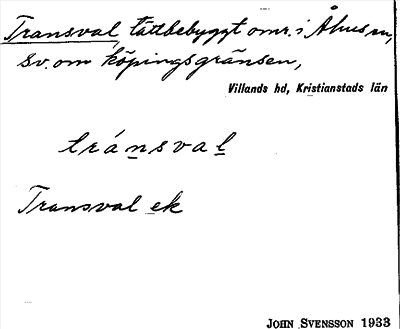 Transval, tättbebyggt omr. i Åhus sn,
sv. om köpingsgränsen,
Villands hd, Kristianstads län
tránsval
Transval ek
JOHN SVENSSON 1933